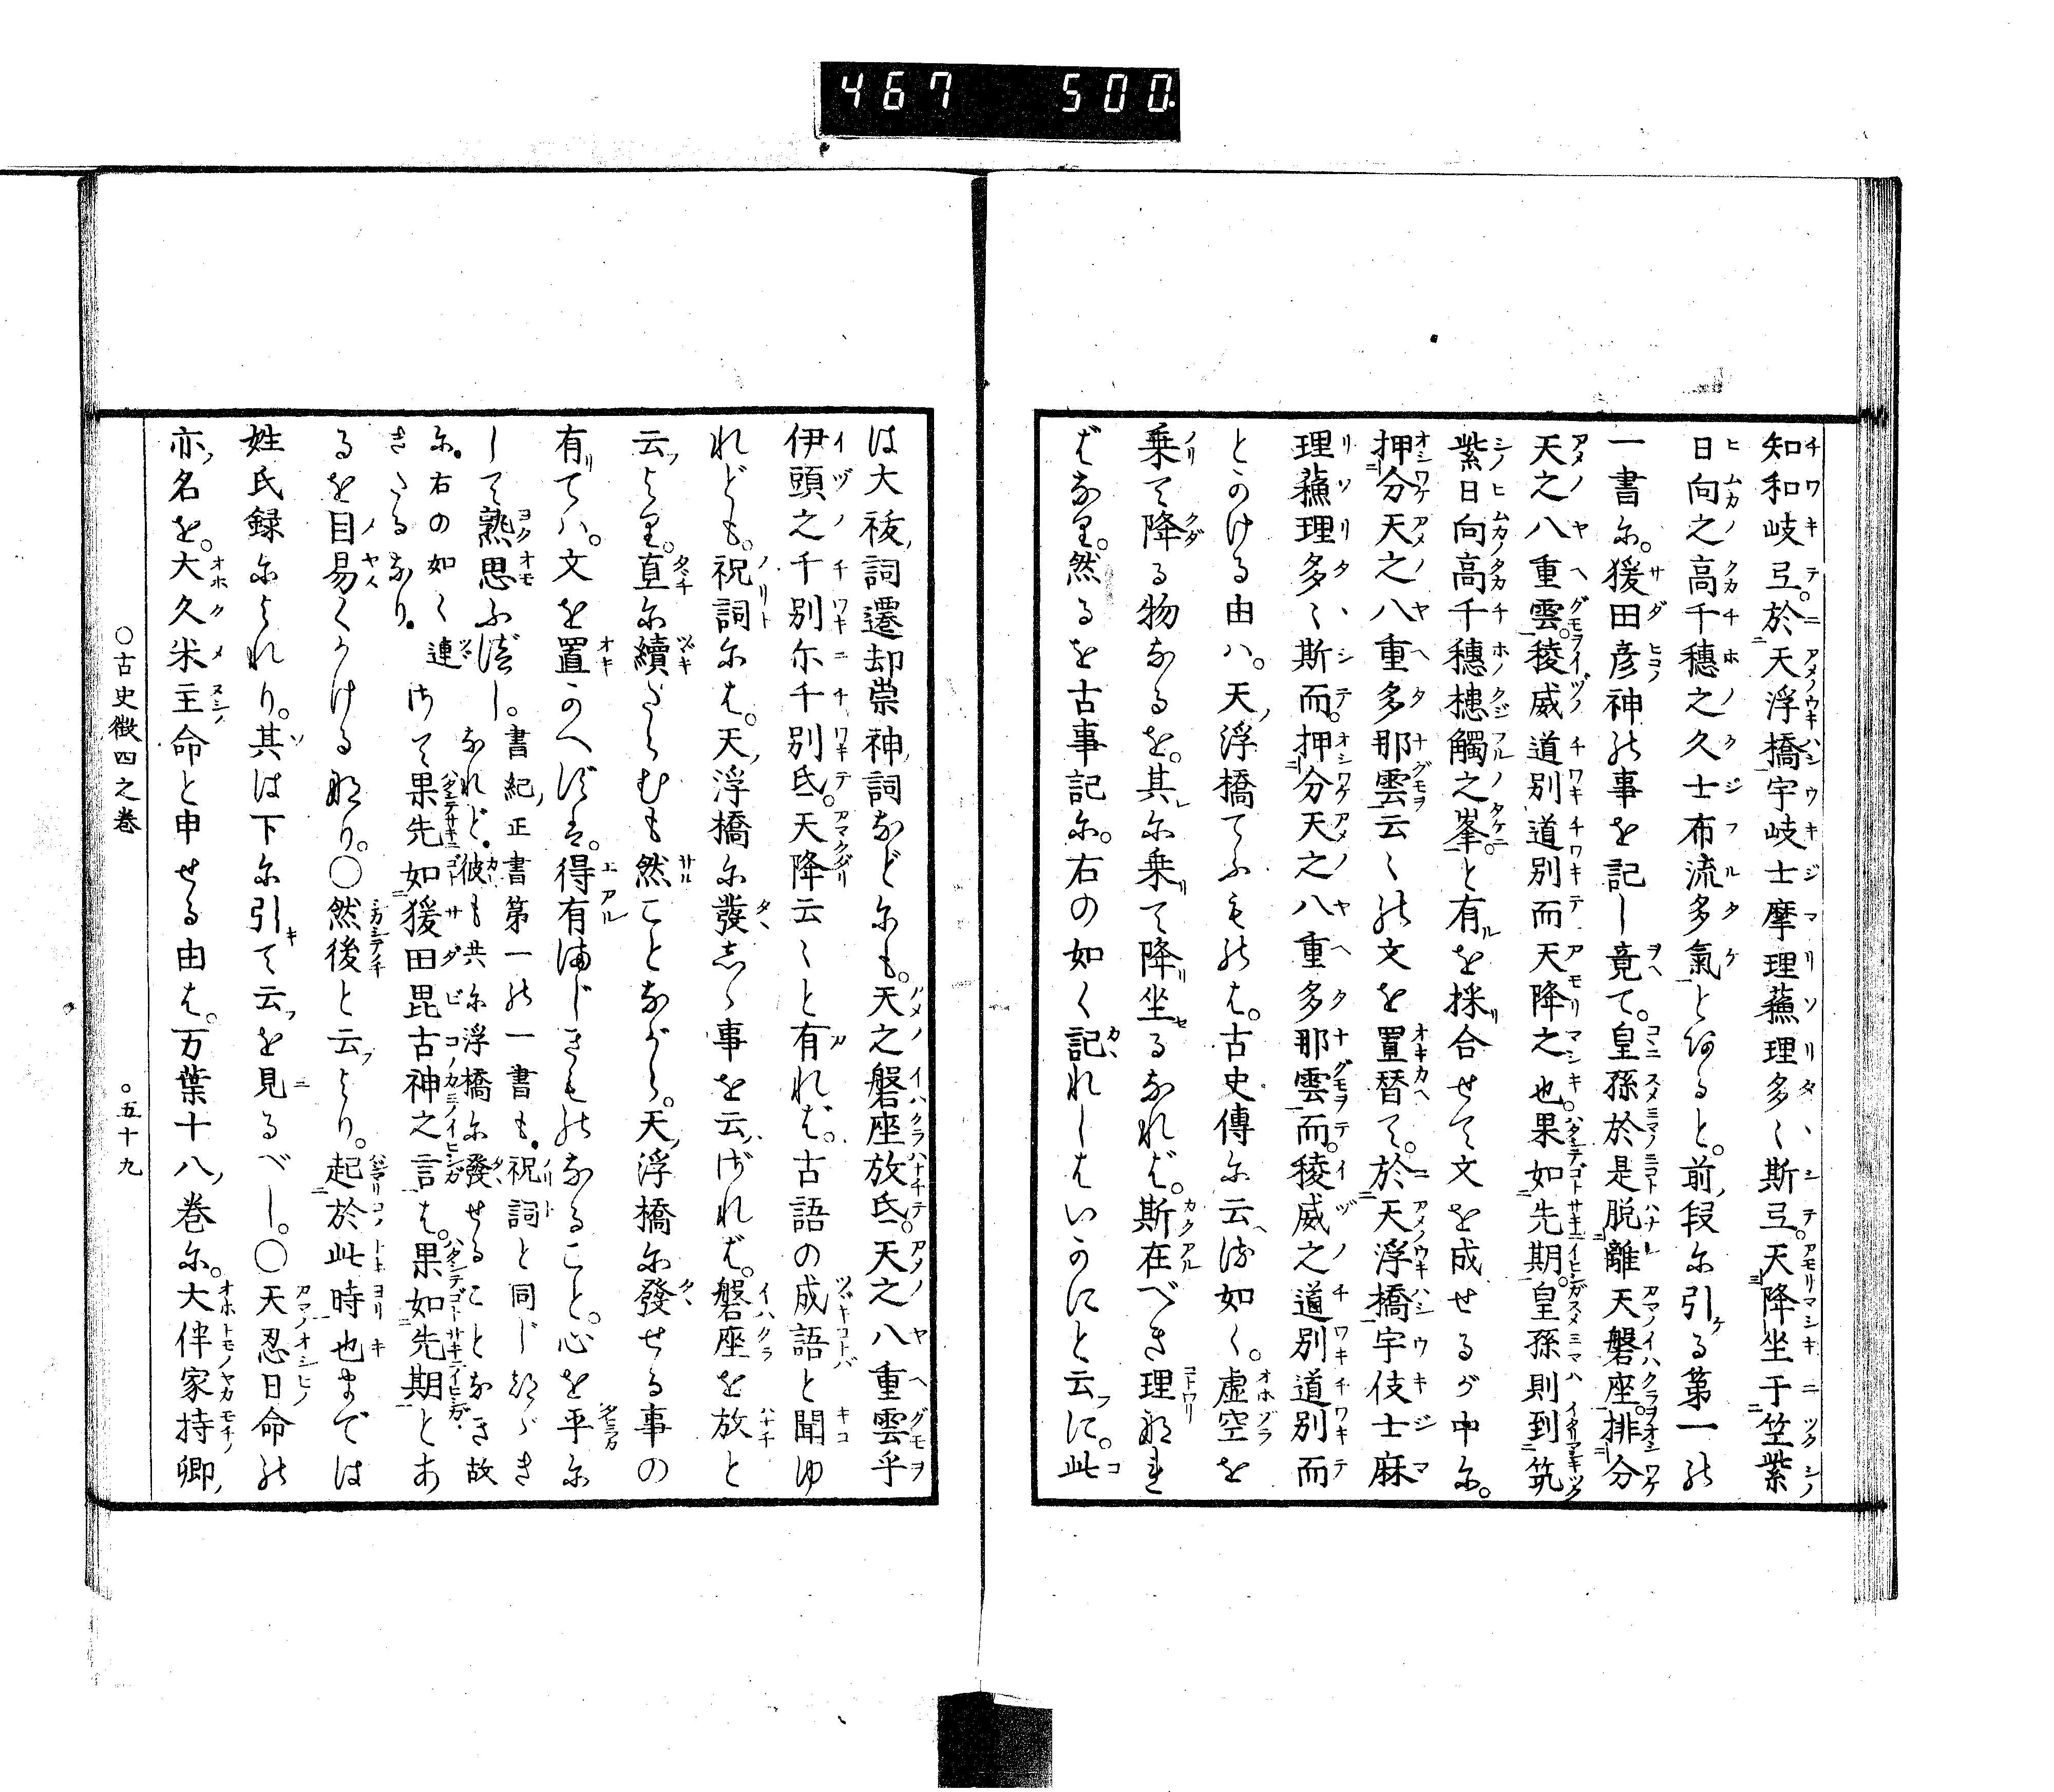 467 500
知和岐弖。於天浮橋宇岐士摩理蘓理多〻斯弖。天降坐于笠紫
日向之高千穗之久士布流多氣と何ると。前段尓引る第一の
一書尓。猨田彦神の事を記し竟て。皇孫於是脱離天磐座。排分
天之八重雲。稜威道別道別而天降之也。果如先期。皇孫則到筑
紫日向高千穗槵觸之峯。と有を採合せて文を成せるが中尓。
押分天之八重多那雲云〻の文を置替て。於天浮橋宇伎士麻
理蘓理多〻斯而。押分天之八重多那雲而。稜威之道別道別而
とのける由ハ。天浮橋てふものは。古史傳尓云る如く。虚空を
乗て降る物なるを。其尓乗て降坐るなれば。斯在べき理なれ
ばなり。然るを古事記尓。右の如く記れしはいかにと云に。此
は大祓詞遷却祟神詞などにも。天之磐座放氐。天之八重雲乎
伊頭之千別尓千別氐。天降云〻と有れば。古語の成語と聞ゆ
れども。祝詞尓は。天浮橋尓發志し事を云ざれば。磐座を放と
云より。直尓續たらむも然ことながら。天浮橋尓發せる事の
有てハ。文を置かへずは。得有まじきものなること。心を平尓
して熟思ふべし。書紀正書第一の一書も。祝詞と同じ都ゞき
なれど。彼も共尓浮橋尓發せることなき故
尓。右の如く連けて果先如猨田毘古神之言は。果如先期とあ
きたるなり。
るを目易くかける那り。〇然後と云より。起於此時也までは
姓氏録尓よれり。其は下尓引て云を見るべし。〇天忍日命の
亦名を。大久米主命と申せる由は。万葉十八巻尓。大伴家持卿
〇古史徴四之巻 〇五十九